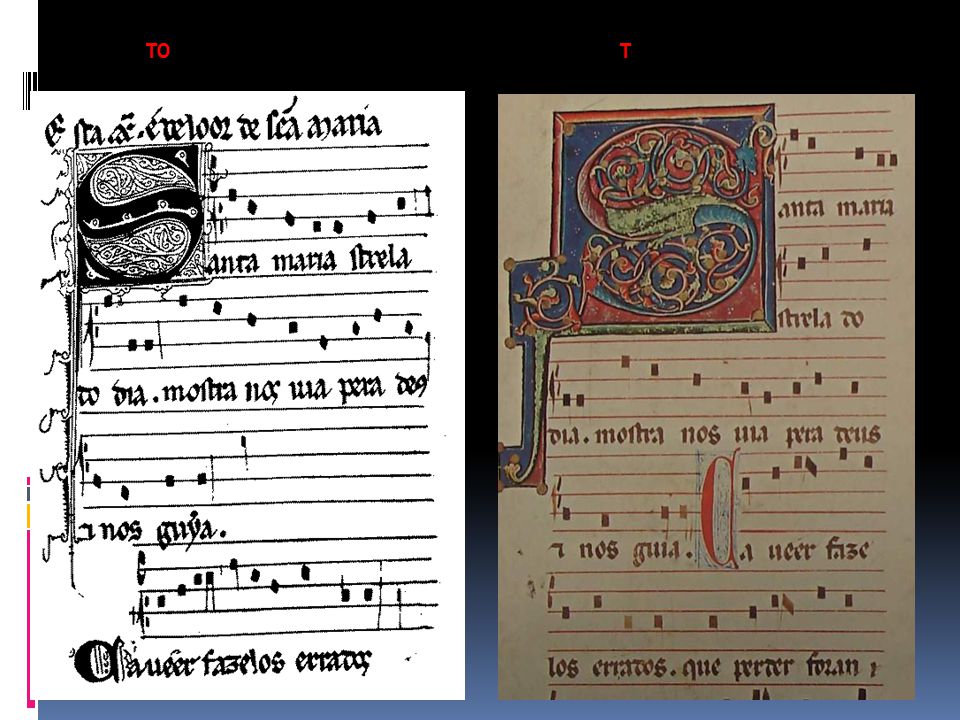 TO
T
Esta .xª. é de loor de scã maria
Santa maria strela
do dia. mostra nos uia pera deus
⁊ nos guya.
Ca ueer fazelos errados
Santa maria
strela do
dia. mostra nos uia pera deus
⁊ nos guia. Ca ueer faze
los errados. que perder foran